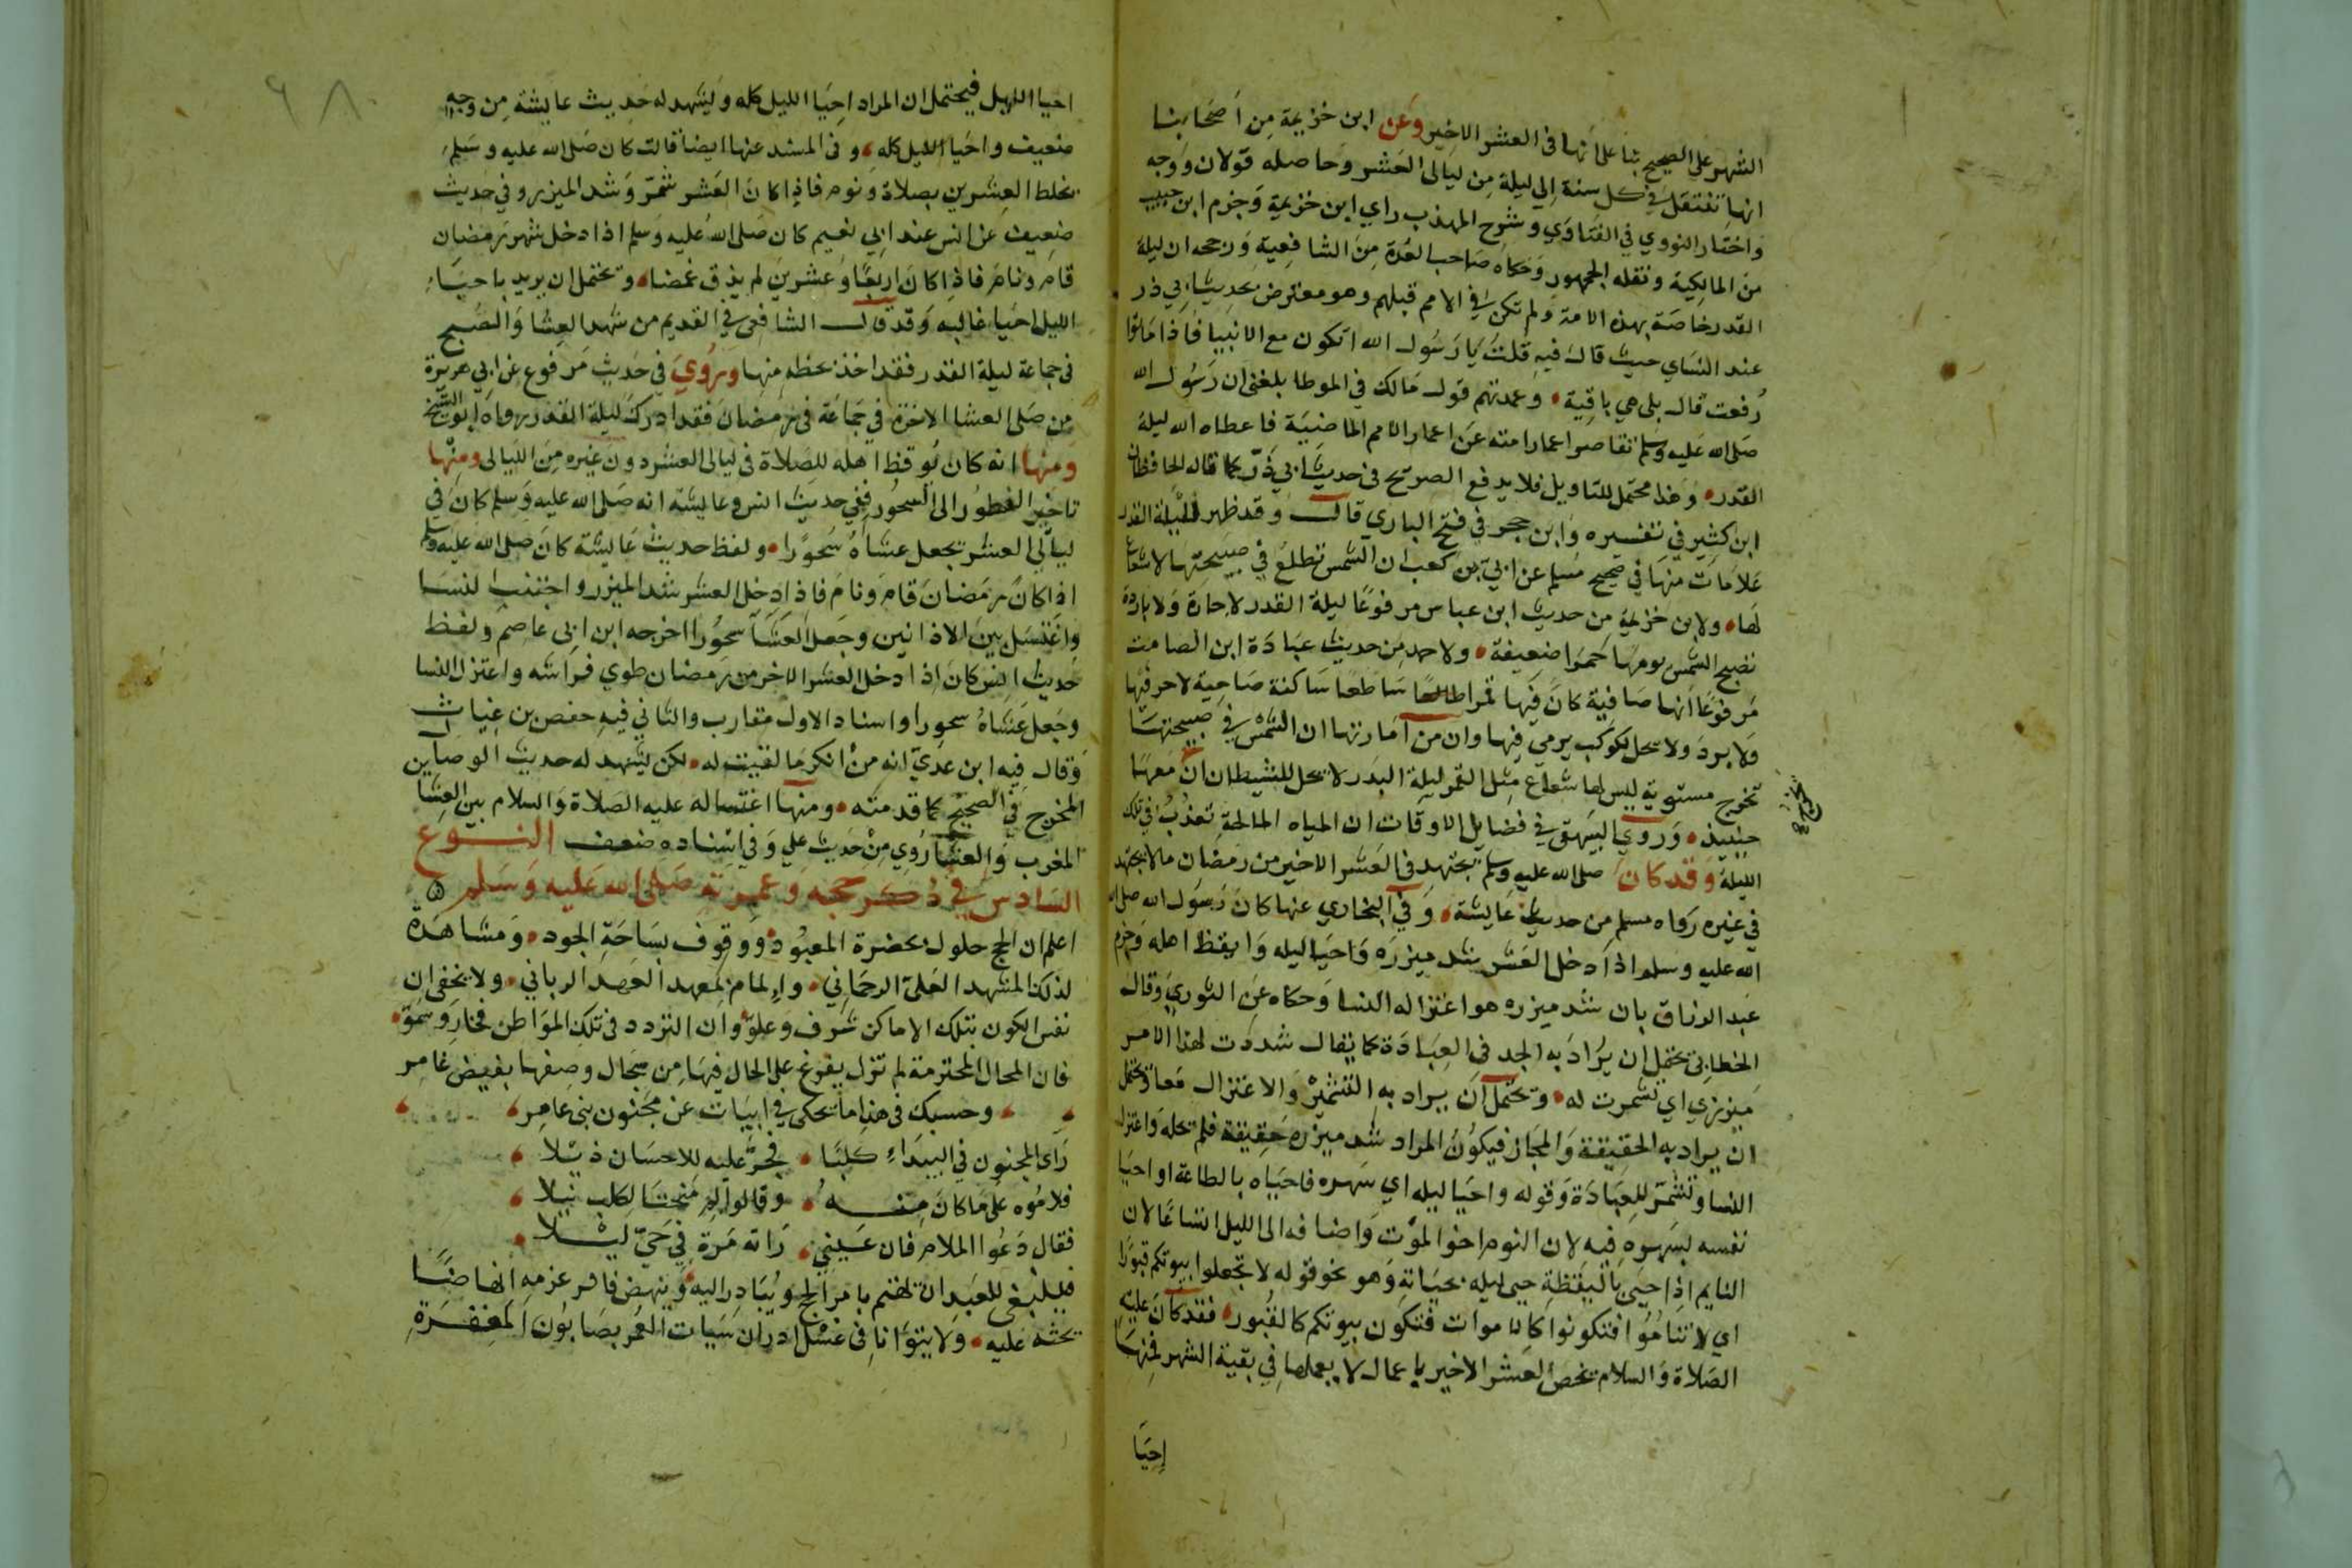 الشهر على الصحيح بنا على انها في العشر الاخير وعن ابن خزيمة من اصحابنا
انها تنتقل في كل سنة الى ليلة من ليالى العشر وحاصله قولان ووجه
واختار النووي في الفتاوي وشرح المهذب راي ابن خزيمة وجزم ابن حبيب
من المالكية ونقله الجمهور وحكاه صاحب العدة من الشافعية ورجحه ان ليلة
القدر خاصة بهذه الامة ولم تكن في الامم قبلهم وهو معترض بحديث ابي ذر
عند النساي حيث قال فيه قلت يا رسول الله اتكون مع الانبيا فاذا ماتوا
رفعت قال بلى هي باقية وعمدتهم قول مالك في الموطا بلغني ان رسول الله
صلى الله عليه وسلم تقاصر اعمار امته عن اعمار الامم الماضية فاعطاه الله ليلة
القدر وهذا محتمل للتاويل فلا يدفع الصريح في حديث ابي ذر كما قاله الحافظان
ابن كثير في تفسيره وابن حجر في فتح الباري قال وقد ظهر لليلة القدر
علامات منها في صحيح مسلم عن ابي بن كعب ان الشمس تطلع في صبيحتها لا شعاع
لها ولابن خزيمة من حديث ابن عباس مرفوعا ليلة القدر لا حارة ولا باردة
تصبح الشمس يومها حمرا ضعيفة ولاحمد من حديث عبادة ابن الصامت
مرفوعا انها صافية كان فيها قمرا طالعا ساطعا ساكنة صاحية لا حر فيها
ولا برد ولا يحل لكوكب يرمي فيها وان من امارتها ان الشمس في صبيحتها
تخرج مستوية ليس لها شعاع مثل القمر ليلة البدر لا يحل للشيطان ان معها
حينيذ وروي البيهقي في فضايل الاوقات ان المياه المالحة تعذب في تلك
الليلة وقد كان صلى الله عليه وسلم يجتهد في العشر الاخير من رمضان ما لا يجتهد
في غيره رواه مسلم من حديث عايشة وفي البخاري عنها كان رسول الله صلى
الله عليه وسلم اذا دخل العشر شد ميزره واحيا ليله وايقظ اهله وجزم
عبد الرزاق بان شد ميزره هو اعتزاله النسا وحكاه عن الثوري وقال
الخطابي يحتمل ان يراد به الجد في العبادة كما يقال شددت لهذا الامر
ميزري اي تشمرت له ويحتمل ان يراد به التشمير والاعتزال معا ويحتمل
ان يراد به الحقيقة والمجاز فيكون المراد شد ميزره حقيقة فلم يحله واعتزل
النسا وتشمر للعبادة وقوله واحيا ليله اي سهره فاحياه بالطاعة او احيا
نفسه بسهره فيه لان النوم اخو الموت واضافه الى الليل اتساعا لان
النايم اذا حيى باليقظة حيى ليله بحياته وهو نحو قوله لا تجعلوا بيوتكم قبورا
اي لا تناموا فتكونوا كالاموات فتكون بيوتكم كالقبور فقد كان عليه
الصلاة والسلام يخص العشر الاخير باعمال لا يعملها في بقية الشهر فمنها
احيا
احيا الليل فيحتمل ان المراد احيا الليل كله ويشهد له حديث عايشة من وجه
ضعيف واحيا الليل كله وفي المسند عنها ايضا قالت كان صلى الله عليه وسلم
يخلط العشرين بصلاة ونوم فاذا كان العشر شمر وشد الميزر وفي حديث
ضعيف عن انس عند ابي نعيم كان صلى الله عليه وسلم اذا دخل شهر رمضان
قام ونام فاذا كان اربعا وعشرين لم يذق غمضا ويحتمل ان يريد باحيا
الليل احيا غالبه وقد قال الشافعي في القديم من شهد العشا والصبح
في جماعة ليلة القدر فقد اخذ بحظه منها وروي في حديث مرفوع عن ابي هريرة
من صلى العشا الاخرة في جماعة في رمضان فقد ادرك ليلة القدر رواه ابو الشيخ
ومنها انه كان يوقظ اهله للصلاة في ليالى العشر دون غيره من الليالى ومنها
تاخير الفطور الى السحور ففي حديث انس وعايشة انه صلى الله عليه وسلم كان في
ليالي العشر يجعل عشاه سحورا ولفظ حديث عايشة كان صلى الله عليه وسلم
اذا كان رمضان قام ونام فاذا دخل العشر شد الميزر واجتنب النسا
واغتسل بين الاذانين وجعل العشا سحورا اخرجه ابن ابي عاصم ولفظ
حديث انس كان اذا دخل العشر الاخر من رمضان طوي فراشه واعتزل النسا
وجعل عشاه سحورا واسناد الاول متقارب والثاني فيه حفص بن غياث
وقال فيه ابن عدي انه من انكر ما لقيت له لكن يشهد له حديث الوصال من
المخرج في الصحيح كما قدمته ومنها اغتساله عليه الصلاة والسلام بين العشا
المغرب والعشا روي من حديث علي وفي اسناده ضعف النوع
السادس في ذكر حجه وعمرته صلى الله عليه وسلم
اعلم ان الحج حلول بحضرة المعبود ووقوف بساحة الجود ومشاهدة
لذلك المشهد العلي الرحماني والمام بمعهد العهد الرباني ولا يخفى ان
نفس الكون بتلك الاماكن شرف وعلو وان التردد في تلك المواطن فخار وسمو
فان المحال المحترمة لم تزل يفرغ على الحال فيها من سجال وصفها بفيض غامر
وحسبك في هذا ما يحكى في ابيات عن مجنون بني عامر
راى المجنون في البيداء كلبا فجر عليه للاحسان ذيلا
فلاموه على ما كان منه وقالوا لم منحت الكلب نيلا
فقال دعوا الملام فان عيني راته مرة في حي ليلا
فينبغى للعبد ان يهتم بامر الحج ويبادر اليه وينهض قافر عزمه انهاضا
يحثه عليه ولا يتوانا في غسل ادران سيات العمر بصابون المغفرة